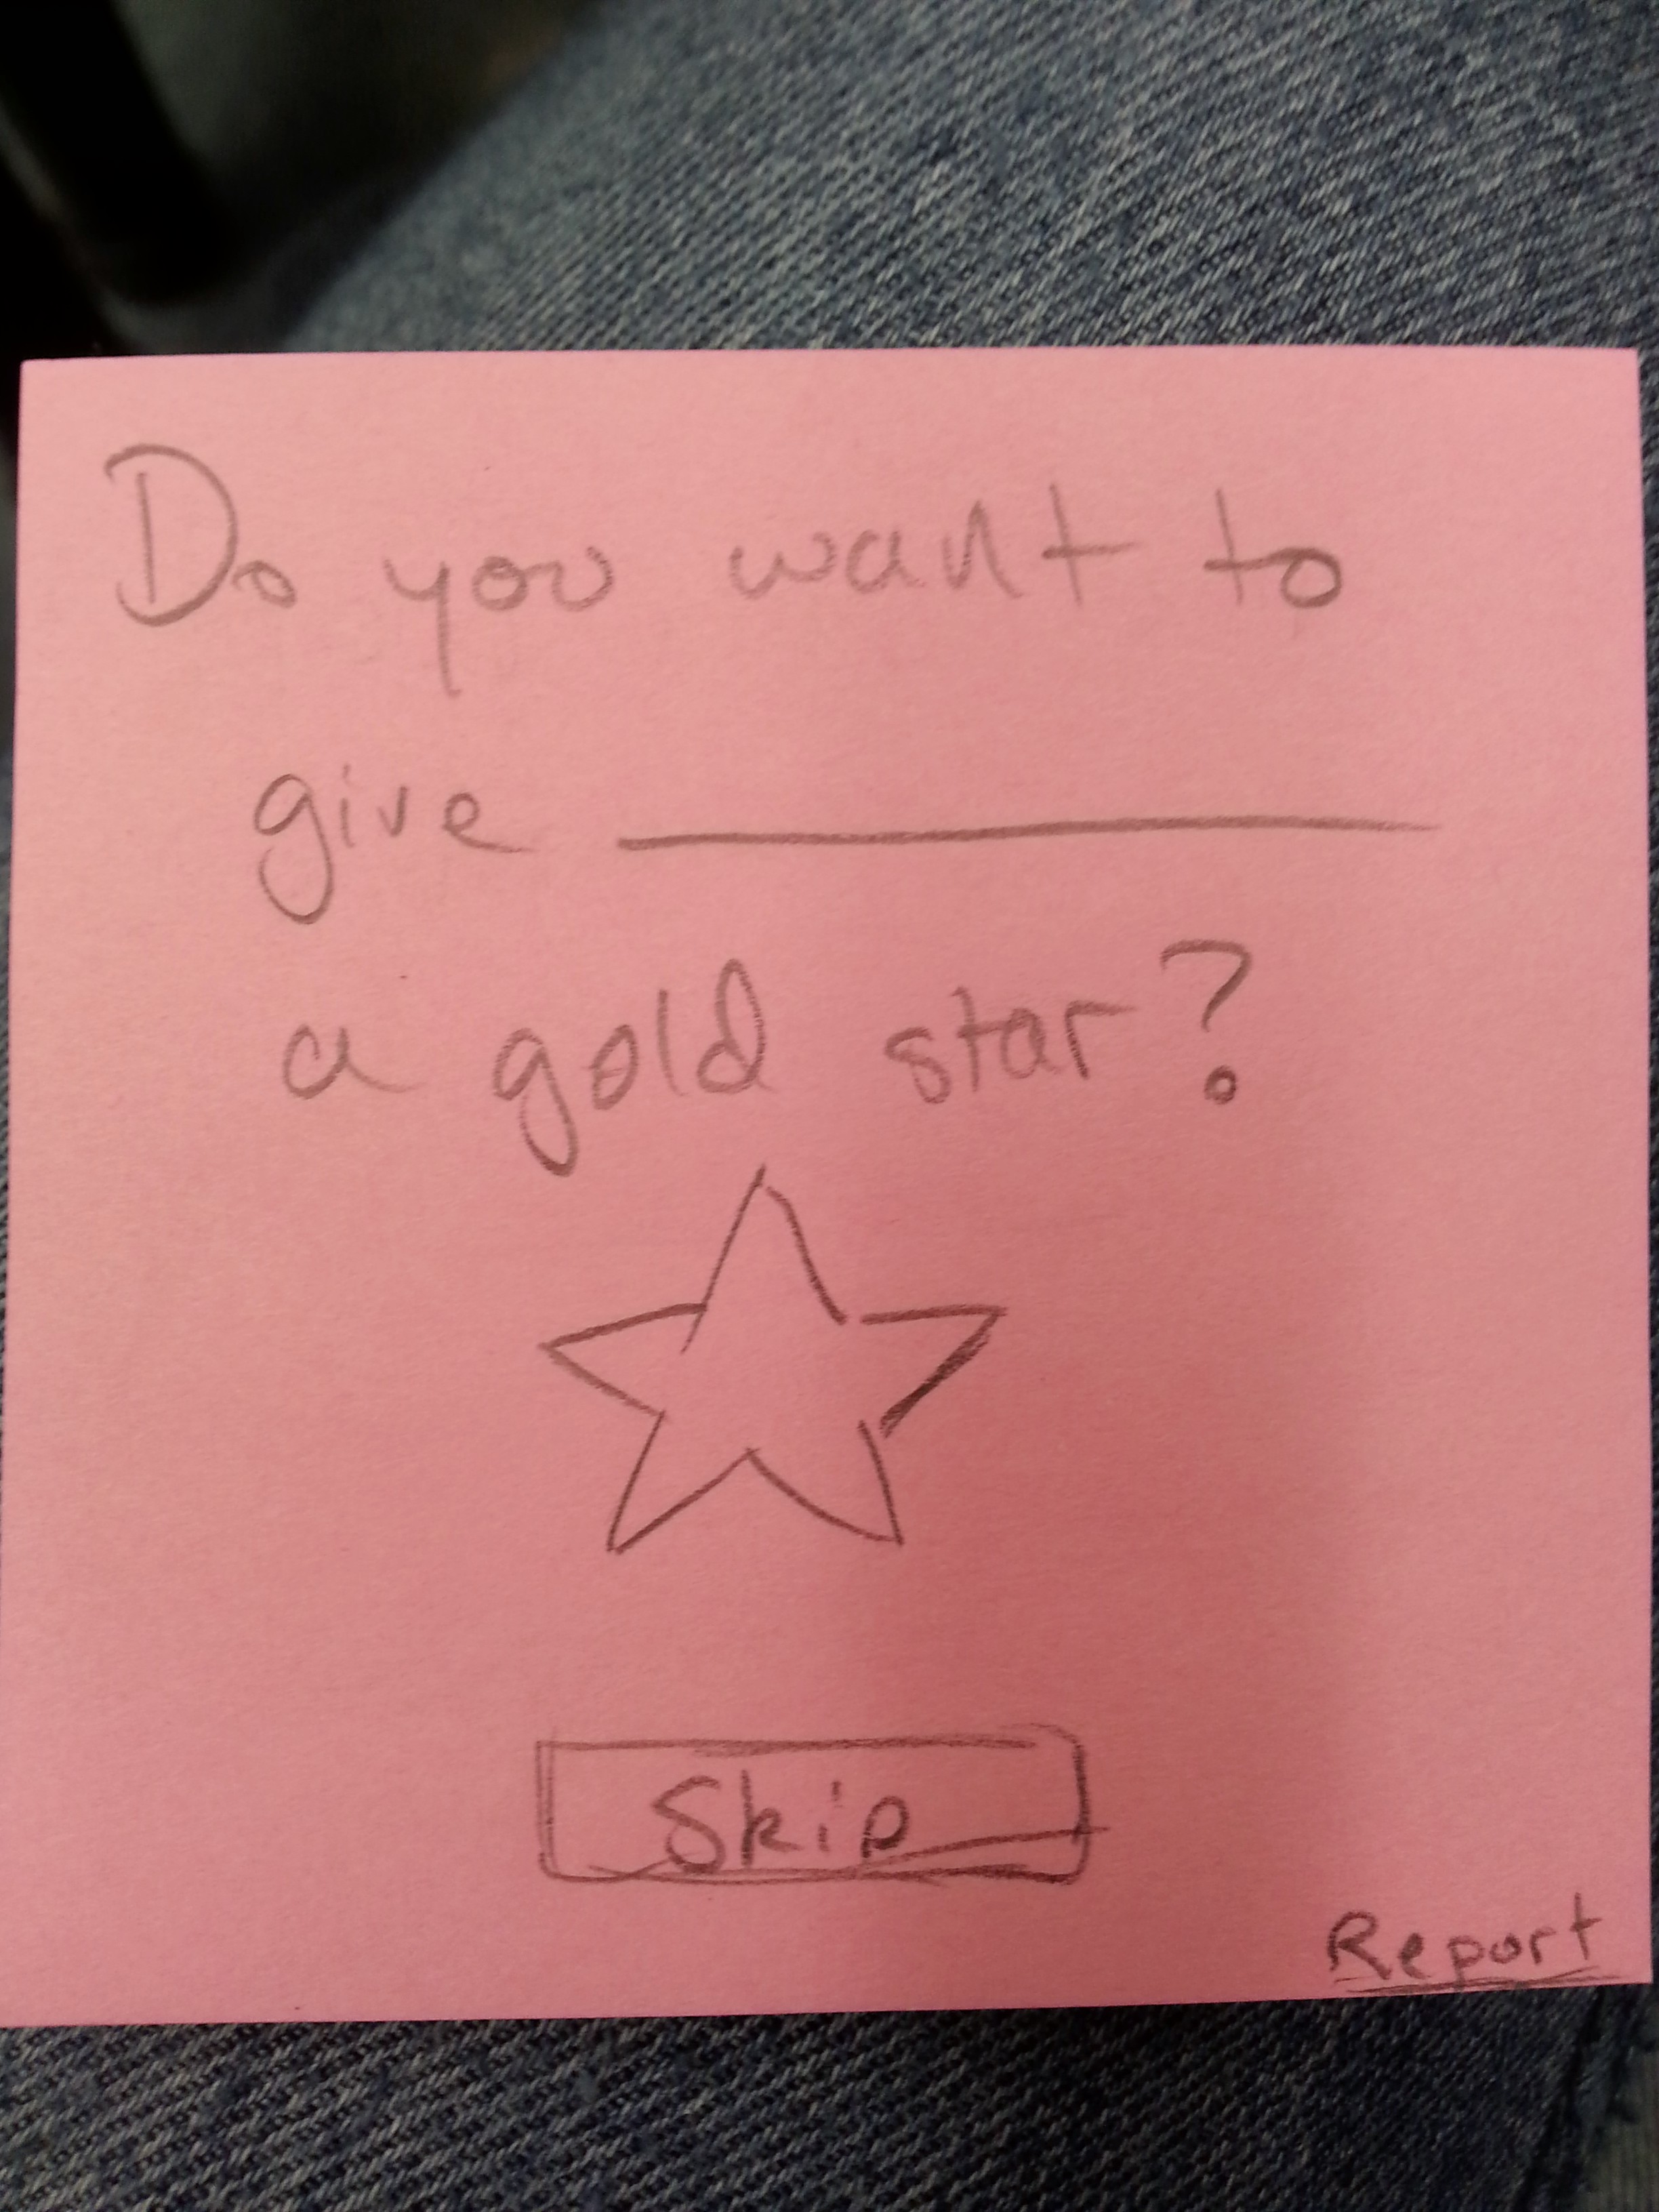 Do you want to
give ________
a gold star?
Skip
Report